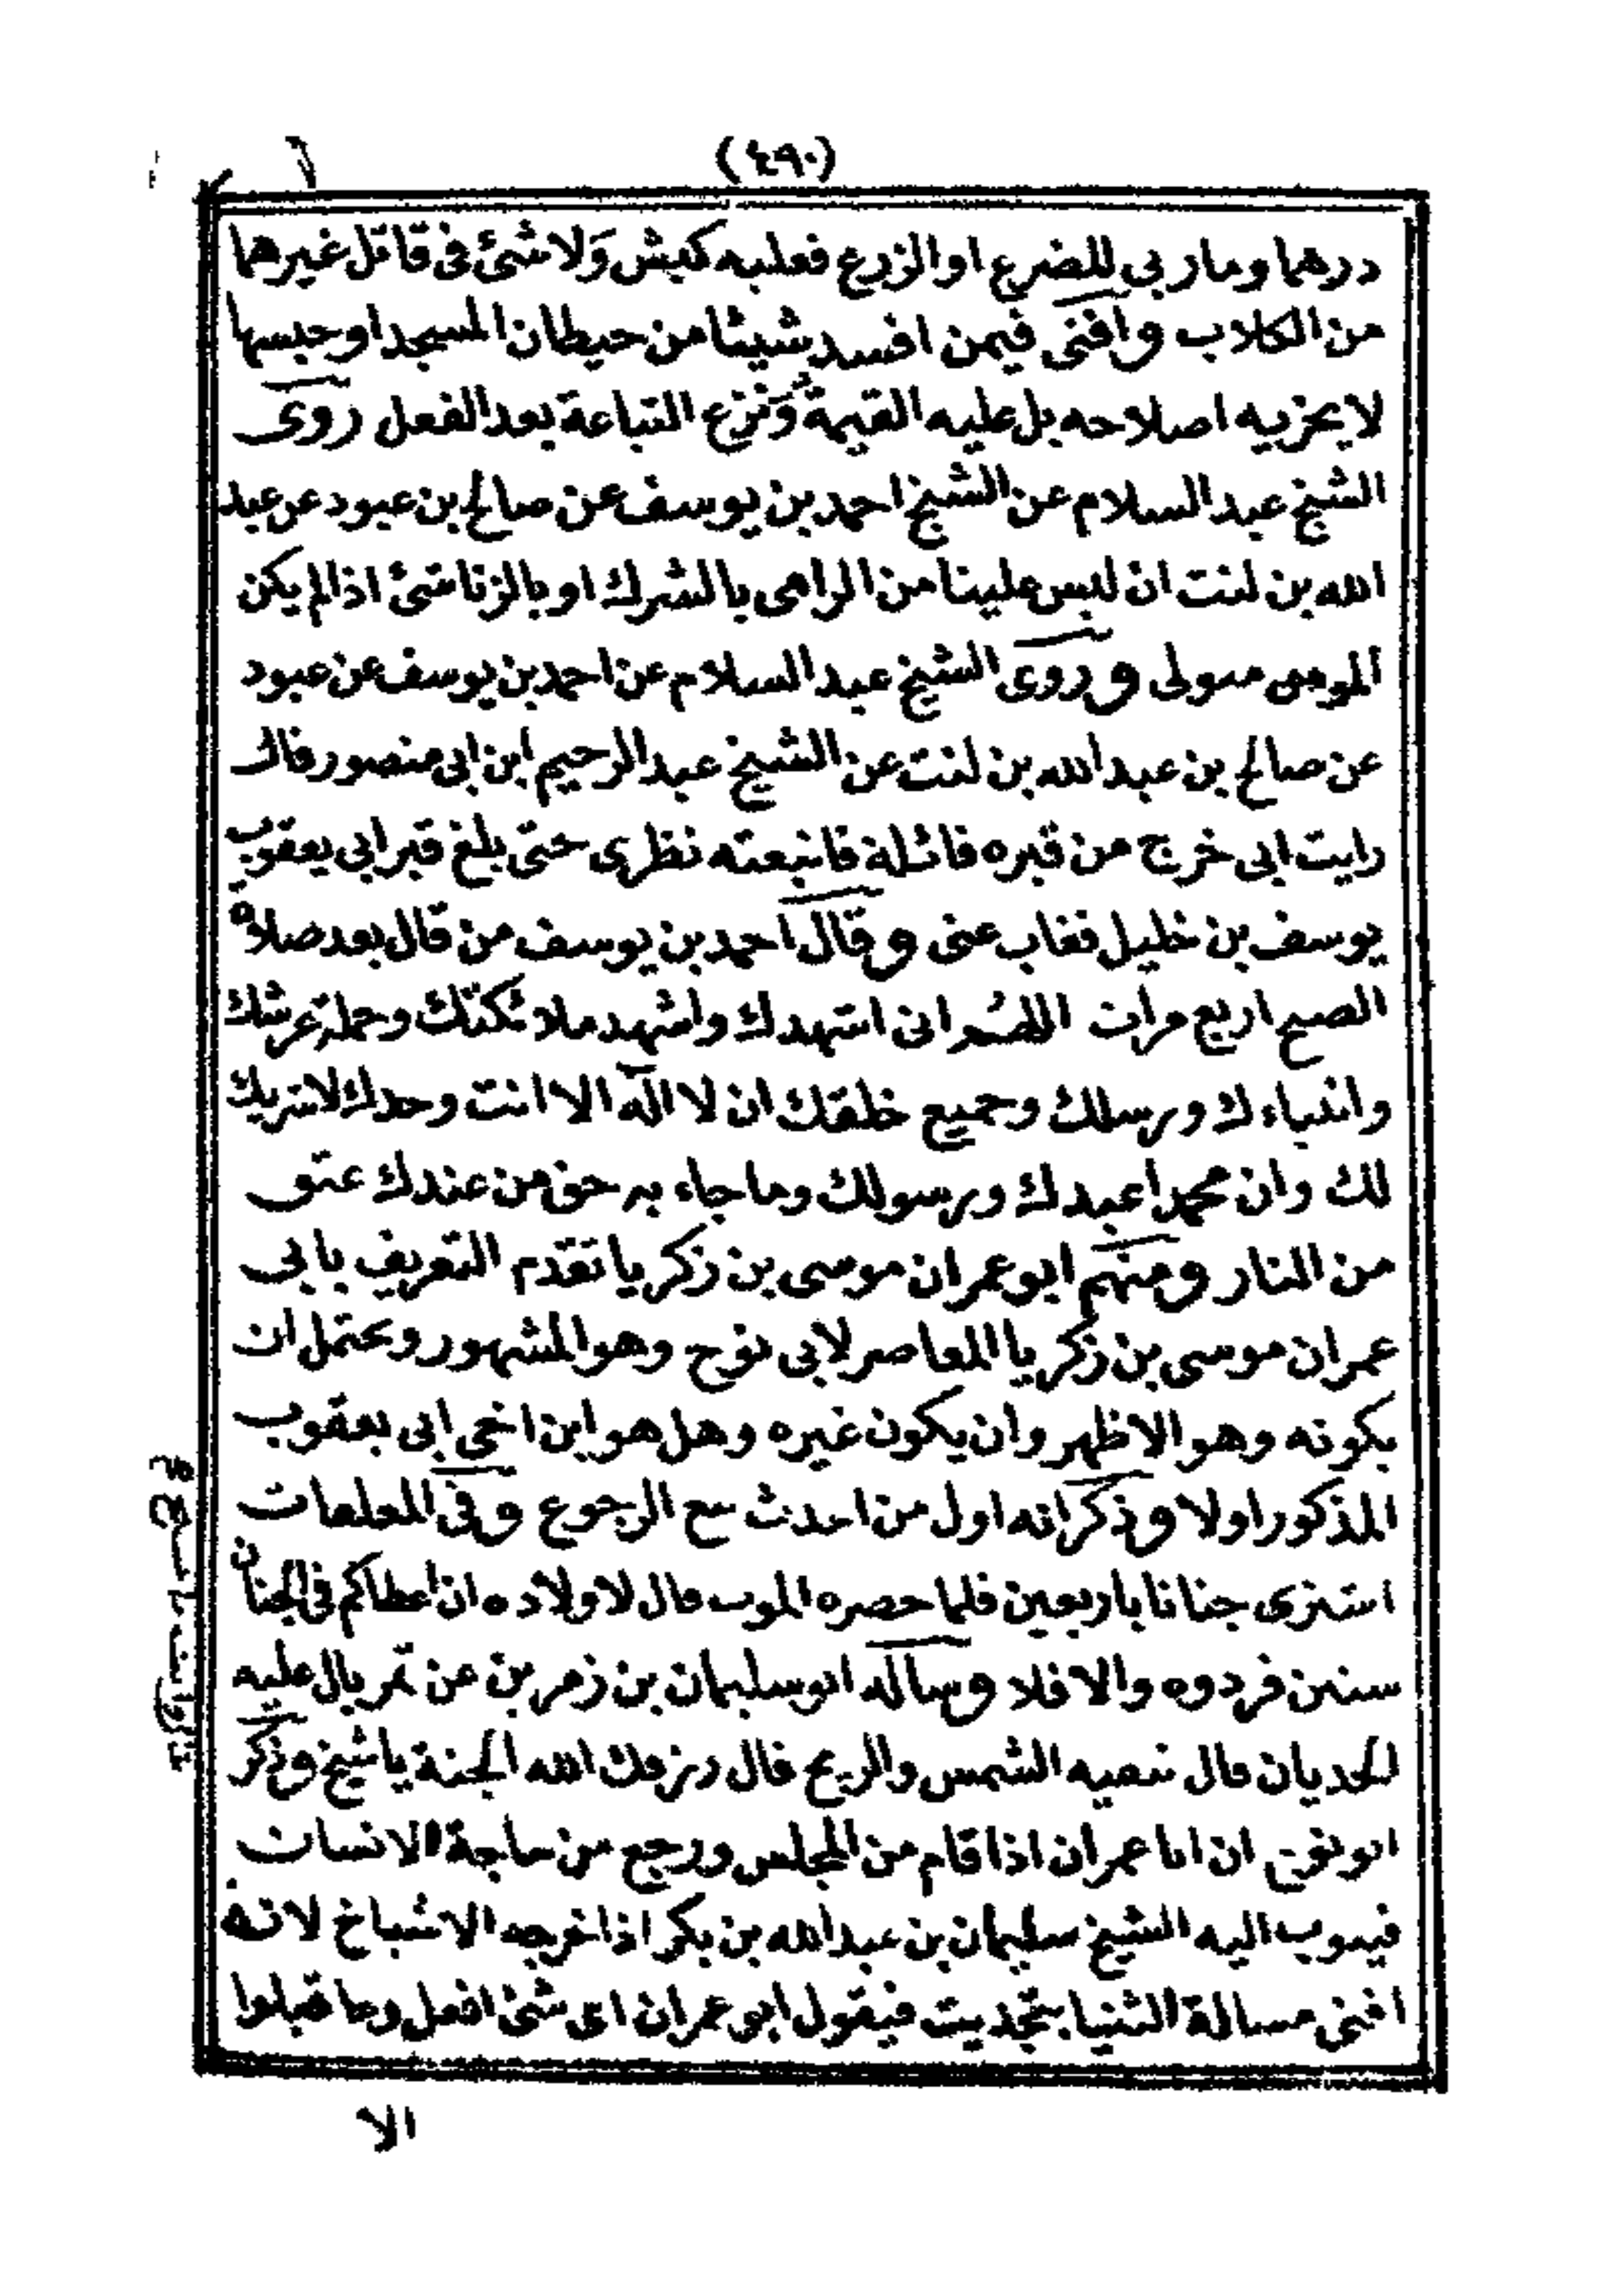 (٤٩٠)
درهما وما ربى للضرع او الزرع فعليه كبش وَلا شئ فى قاتل غيرهما
من الكلاب وافتى فيمن افسد شيئا من حيطان المسجد او حبسها
لا يجزيه اصلاحه بل عليه القيمة وَنزع التباعة بعد الفعل روى
الشيخ عبد السلام عن الشيخ احمد بن يوسف عن صالح بن عبود عن عبد
الله بن لنت ان ليس علينا من الرامى بالشرك او بالزنا شئ اذا لم يكن
المرمى متولى وروى الشيخ عبد السلام عن احمد بن يوسف عن عبود
عن صالح بن عبد الله بن لنت عن الشيخ عبد الرحيم ابن ابى منصور قال
رايت ابى خرج من قبره قائلة فاتبعته نظرى حتى بلغ قبر ابى يعقوب
يوسف بن خليل فغاب عنى وقال احمد بن يوسف من قال بعد صلاة
الصبح اربع مرات اللهم انى اشهدك واشهد ملائكتك وحملة عرشك
وانبياءك ورسلك وجميع خلقك ان لا اله الا انت وحدك لا شريك
لك وان محمدا عبدك ورسولك وما جاء به حق من عندك عتق
من النار ومنهم ابو عمران موسى بن زكريا تقدم التعريف بابى
عمران موسى بن زكريا المعاصر لابى نوح وهو المشهور ويحتمل ان
يكونه وهو الاظهر وان يكون غيره وهل هو ابن اخى ابى يعقوب
المذكور اولا وذكر انه اول من احدث بيع الرجوع وفى المعلقات
اشترى جنانا باربعين فلما حضره الموت قال لاولاده ان اعطاكم فى الجنان
ستين فردوه والا فلا وساله ابو سليمان بن زمرين عن تمر بال عليه
الجديان قال تصيبه الشمس والريح قال رزقك الله الجنة يا شيخ وذكر
ابو نوح ان ابا عمران اذا قام من المجلس ورجع من حاجة الانسان
اليه الشيخ سليمان بن عبد الله بن بكر اذا اخرجه الاشياخ لانه
افتى مسالة الثنيا بتحديث فيقول ابو عمران اى شئ افعل وما قبلوا
الا